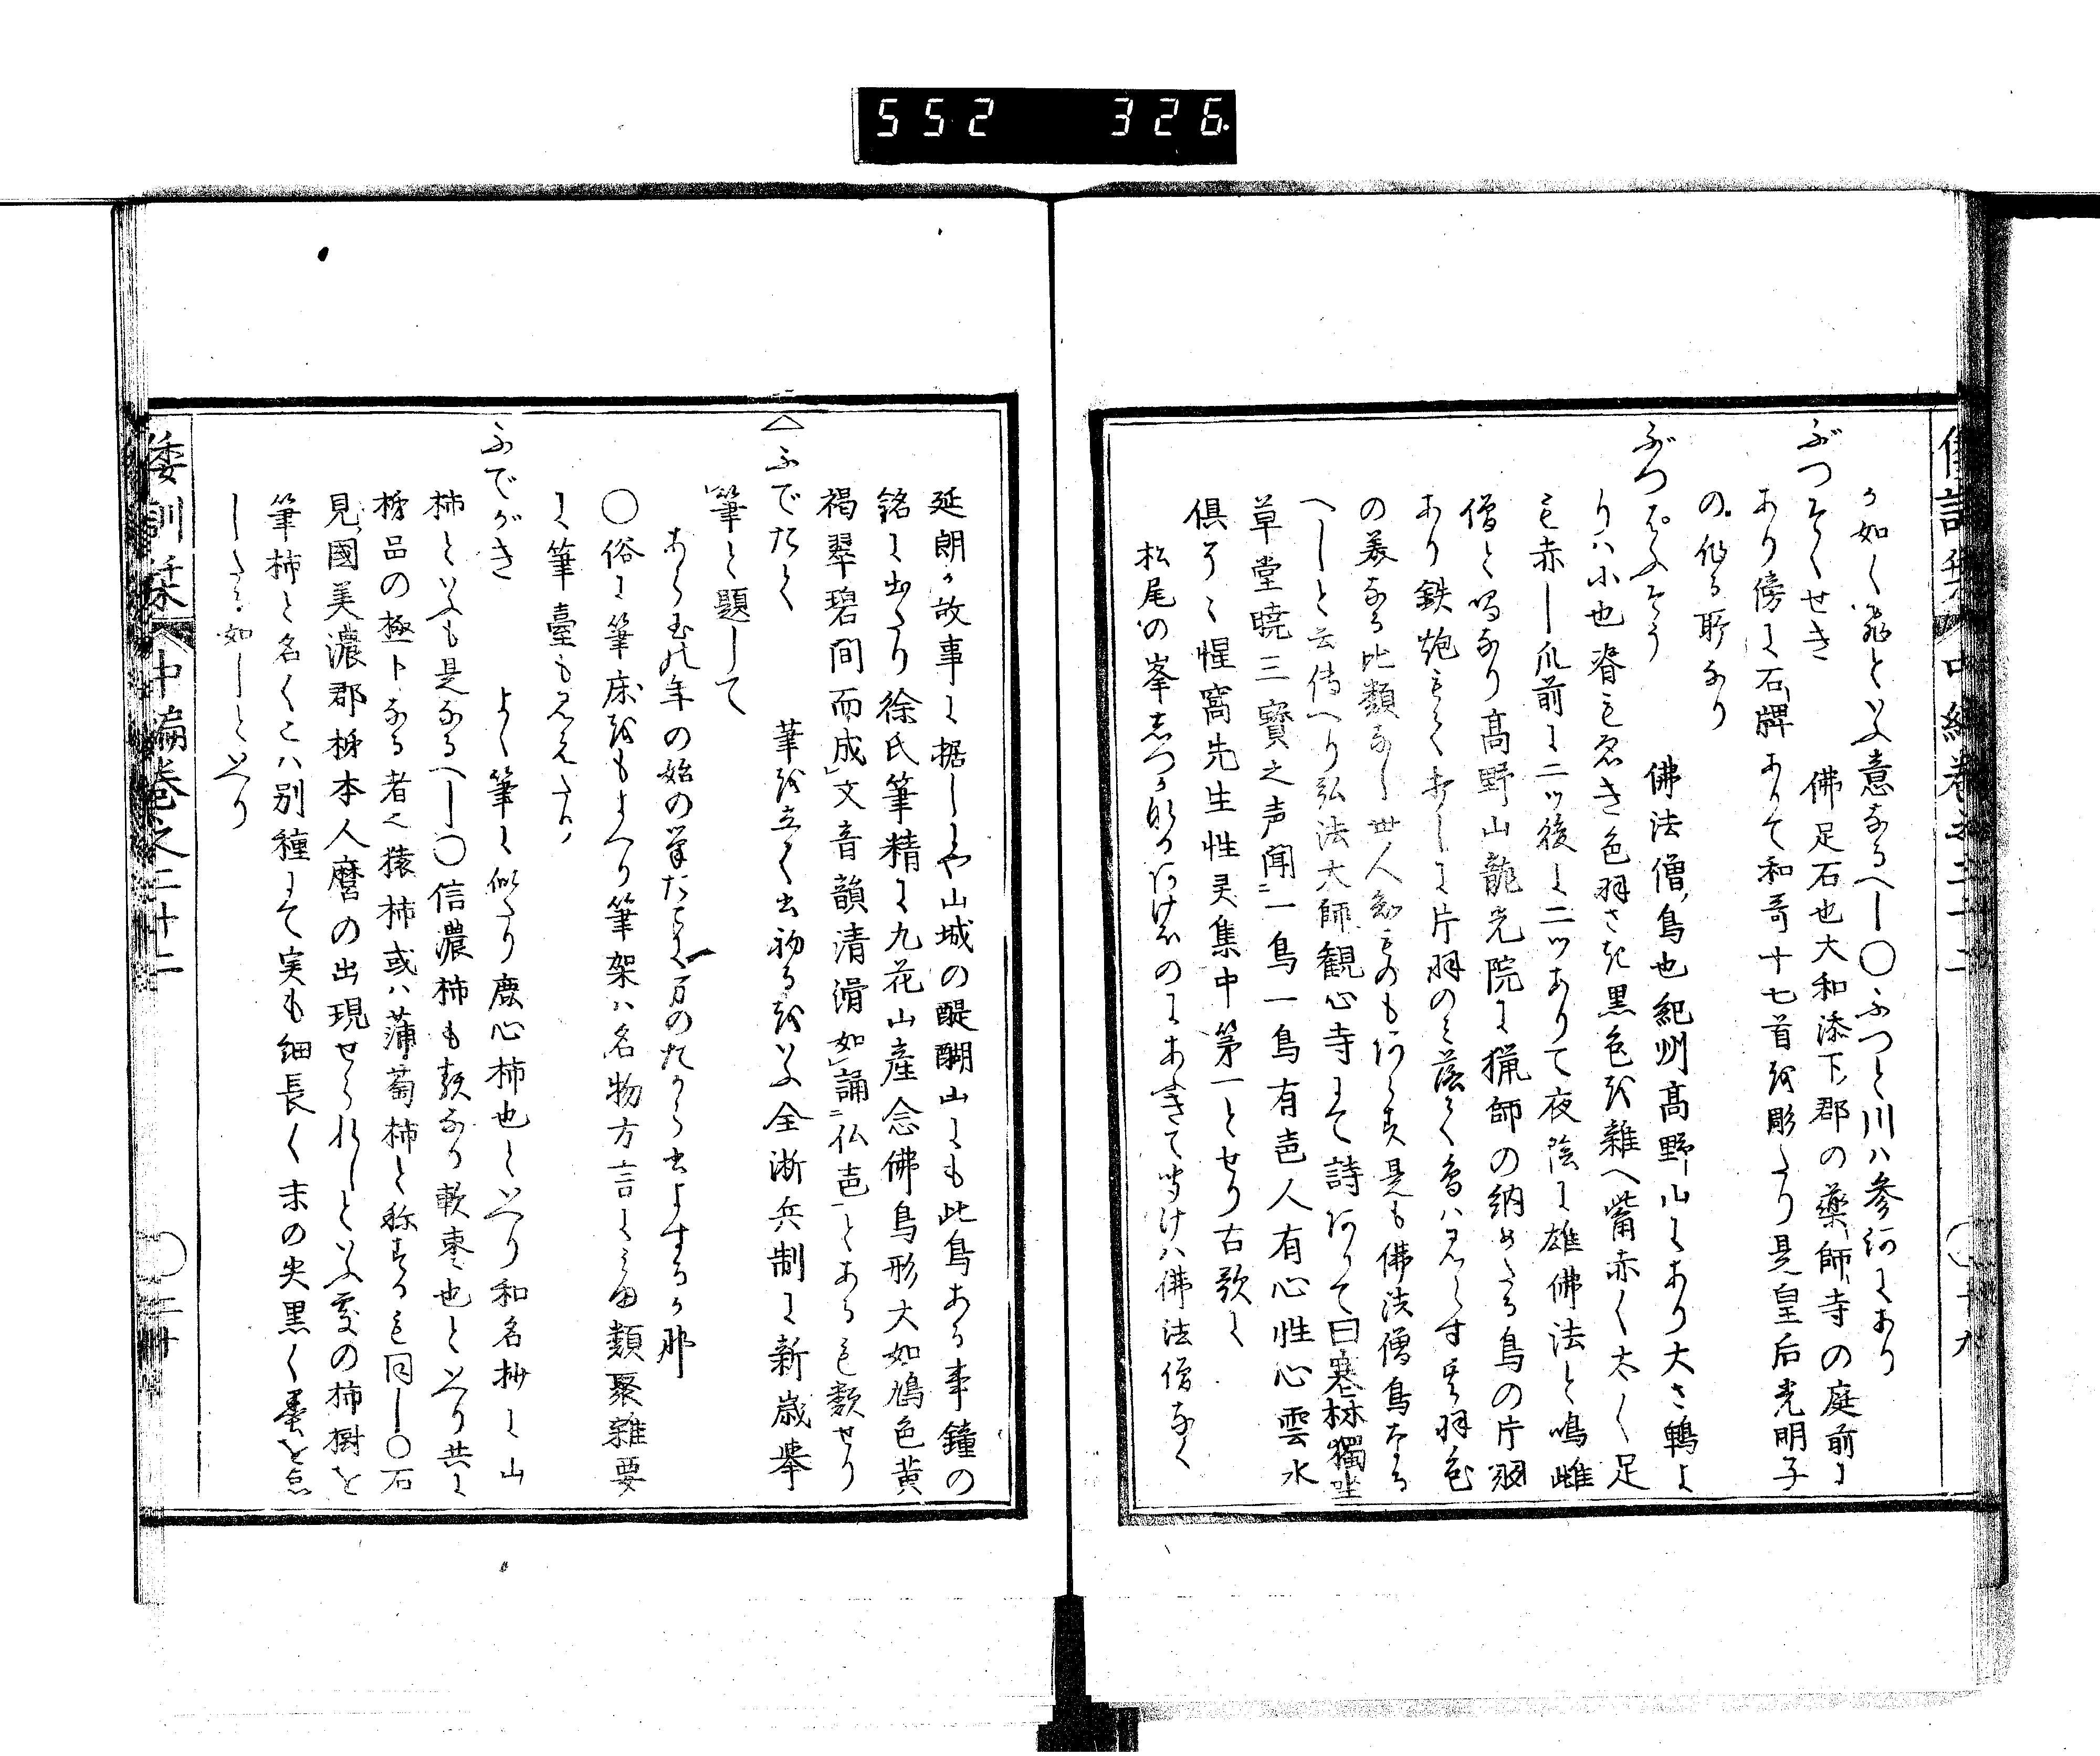 552 326
倭訓栞 中編巻之二十二 十九
か如く飛といふ意なるへし〇ふつと川ハ参河にあり
ぶつそくせき 佛足石也大和添下郡の藥師寺の庭前に
あり傍に石碑ありて和哥十七首を彫たり是皇后光明子
の作る所なり
ぶつぽふそう 佛法僧鳥也紀州高野山にあり大さ鶫よ
りハ小也脊も忽き色羽さき黒色を雜へ觜赤く太く足
も赤し爪前に二ッ後に二ッありて夜陰に雄佛法と鳴雌
僧と鳴なり高野山龍光院に猟師の納めたる鳥の片翅
あり鉄炮もてうちしに片羽のミ落て鳥ハ見えす其羽色
の美なる比類なし世人
へしと云傳へり弘法大師観心寺にて詩ありて曰寒林獨坐
草堂暁三寳之声聞二一鳥一鳥有声人有心性心雲水
倶了々惺窩先生性灵集中第一とせり古歌に
松尾の峯しつかなるあけほのにあふきて聞けハ佛法僧なく
延朗か故事に据しにや山城の醍醐山にも此鳥ある事鐘の
銘に出たり徐氏筆精に九花山產念佛鳥形大如鳩色黄
褐翠碧間而成文音韻清滑如誦二仏声一とあるも類せり
△ふでたて 筆を立て出初るをいふ全浙兵制に新歳挙
筆と題して
あら玉の年の始の筆たてに万のたから出よするか那
〇俗に筆床をもよへり筆架ハ名物方言にミゆ類聚雜要
に筆臺も見えたり
ふでがき よく筆に似たり鹿心柿也といへり和名抄に山
柿といふも是なるへし〇信濃柿も類なり軟棗也といへり共に
柹品の極下なる者也猿柿或ハ蒲萄柿と称するも同し〇石
見國美濃郡柹本人麿の出現せられしといふ處の柿樹を
筆柿と名くこハ別種にて実も細長く末の尖黒く墨を点
したる如しといへり
倭訓栞 中編巻之二十二 二十